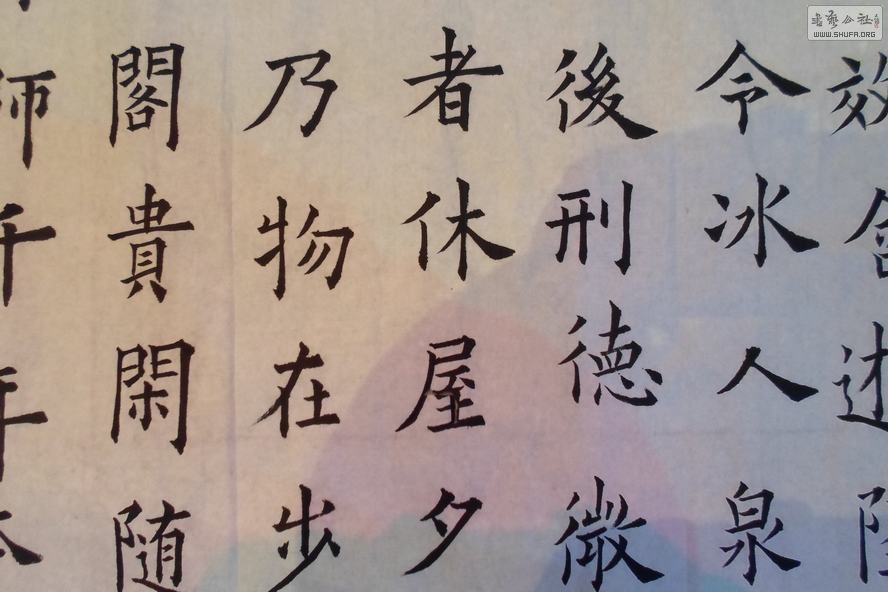 效會述陸
令冰人泉
後刑德徵
者休屋夕
乃物在步
閣貴閑随
師千年本
書藝公社
WWW.SHUFA.ORG